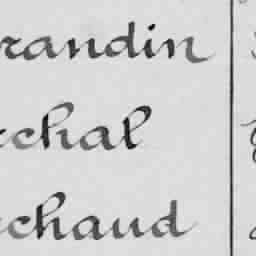 randin
chal
chaud